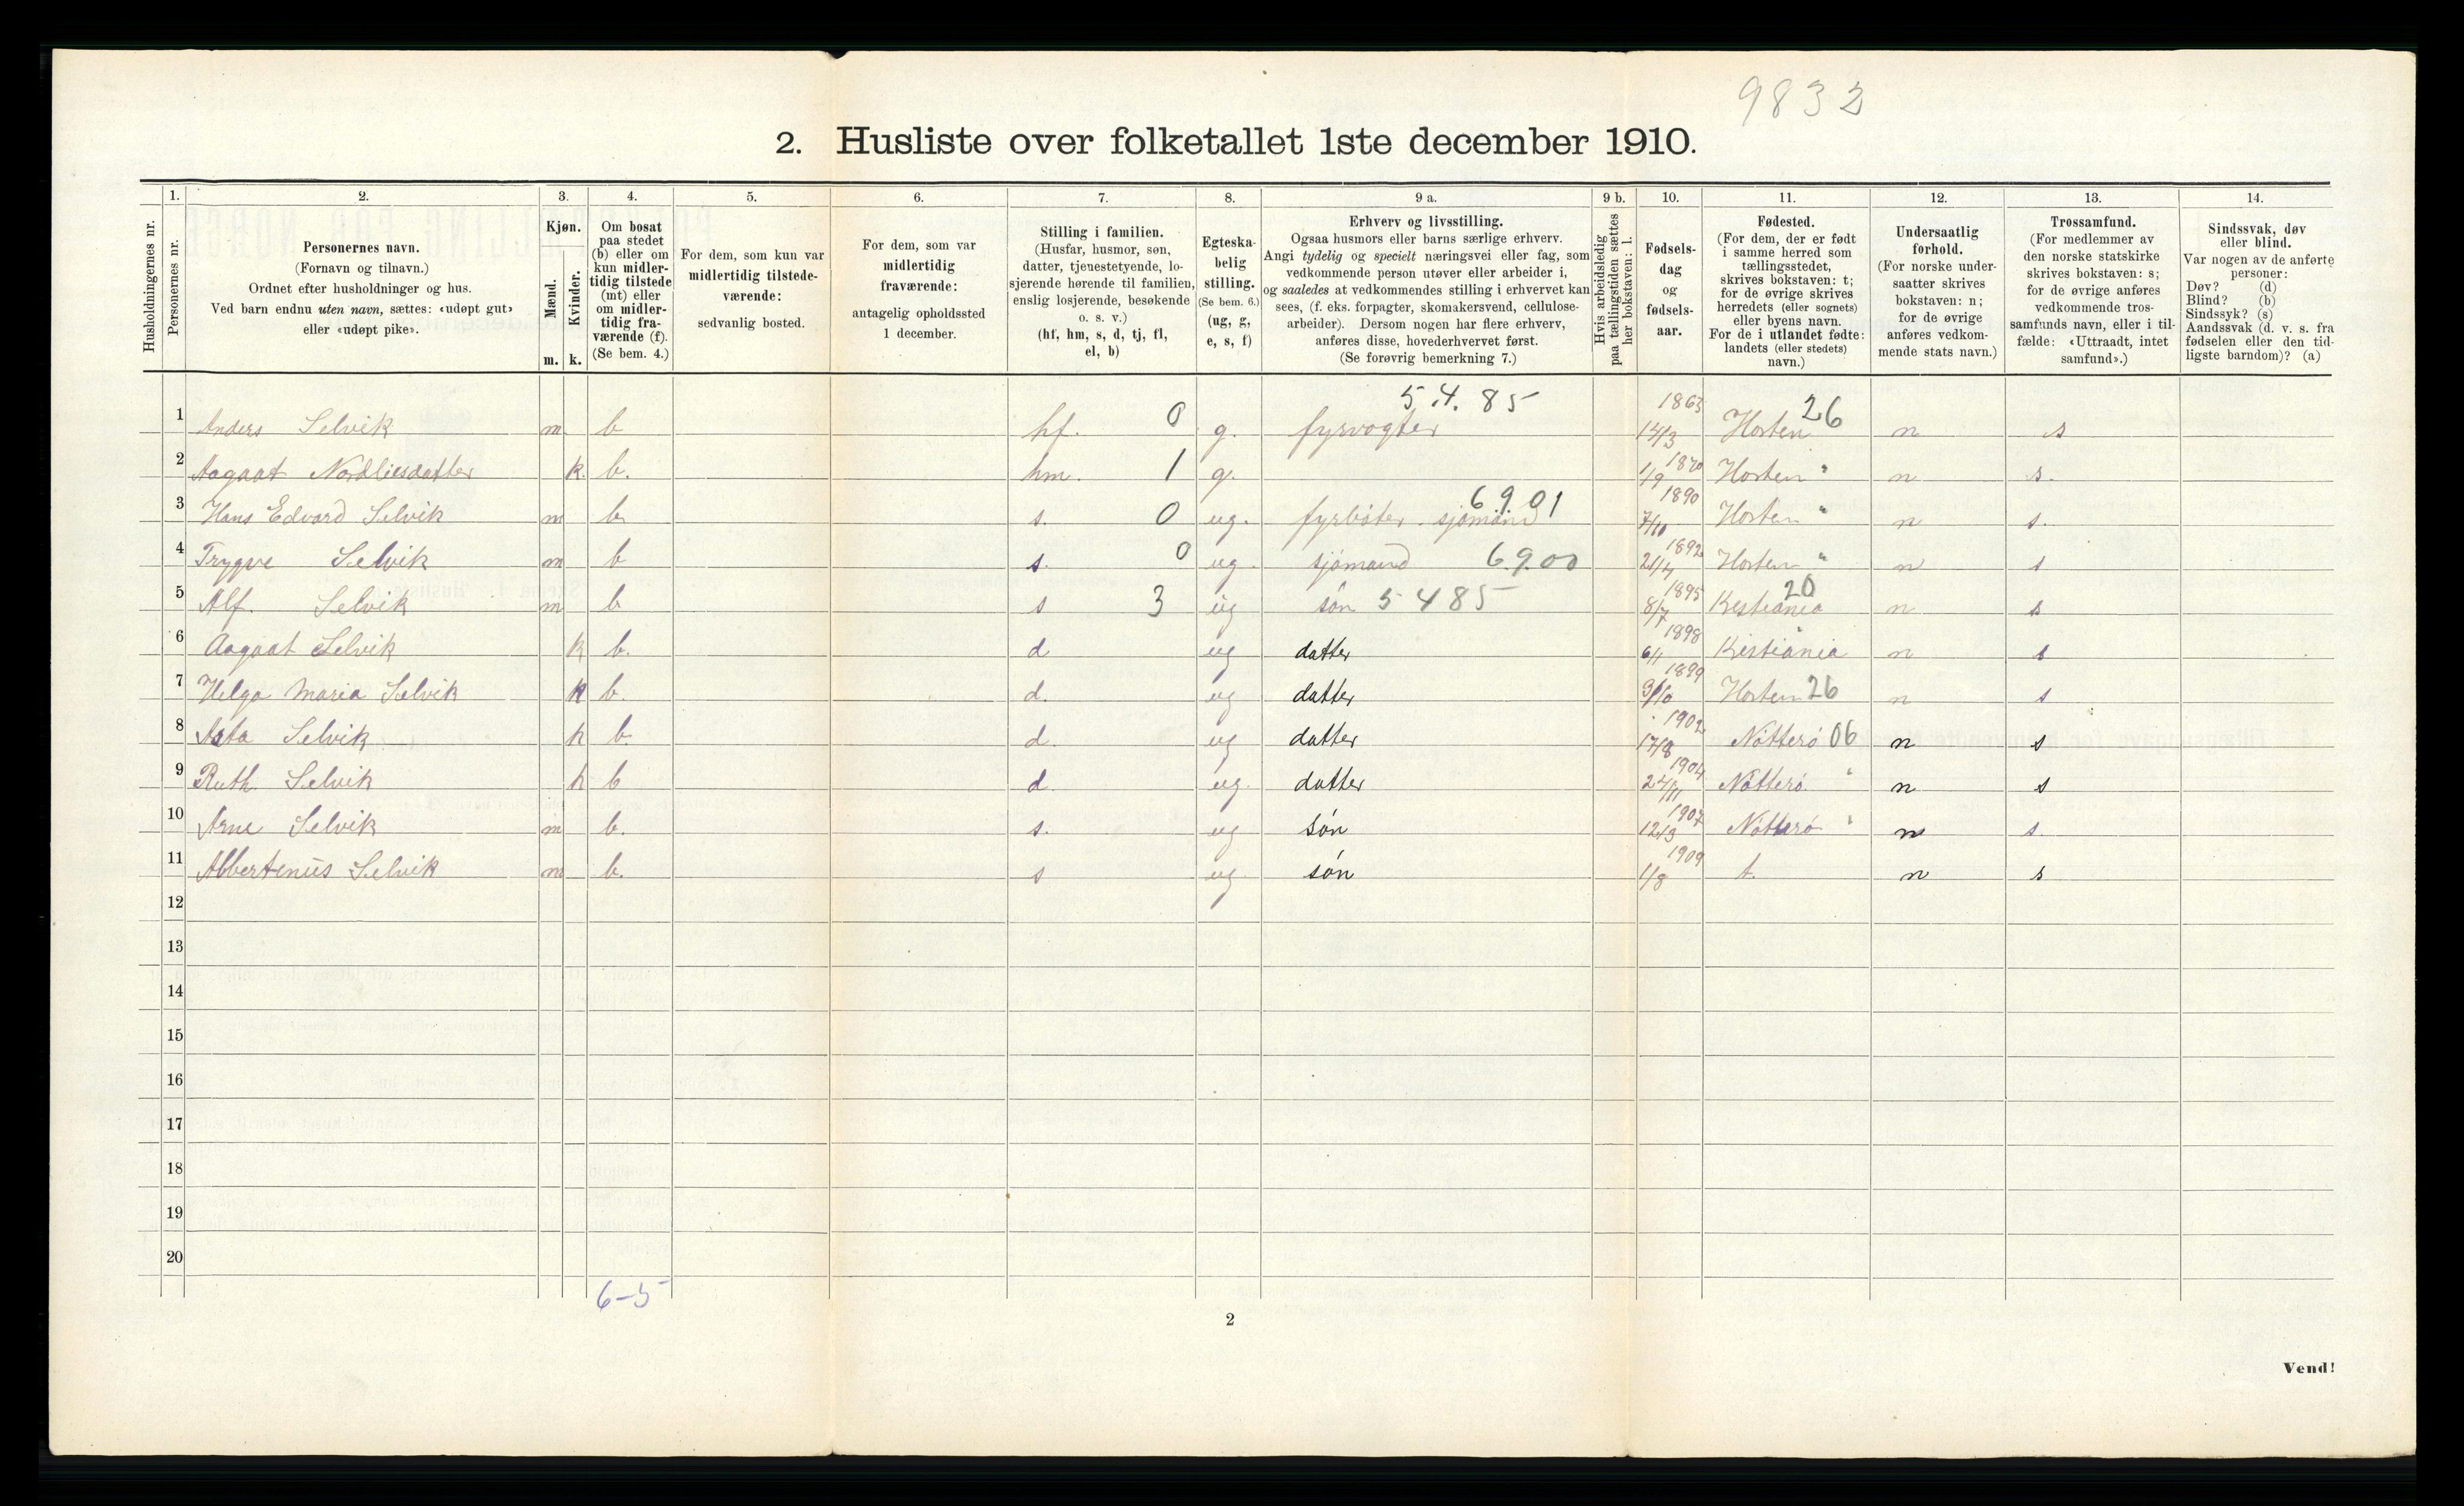 9832
2. Husliste over folketallet 1ste december 1910.
Husholdningernes nr.
1.
Personernes nr.
2.
Personernes navn.
(Fornavn og tilnavn.)
Ordnet efter husholdninger og hus.
Ved barn endnu uten navn, sættes: «udøpt gut»
eller «udøpt pike».
3.
Kjøn.
Mænd.
Kvinder.
m. k.
4.
Om bosat
paa stedet
(b) eller om
kun midler-
tidig tilstede
(mt) eller
om midler-
tidig fra-
værende (f).
(Se bem. 4.)
5.
For dem, som kun var
midlertidig tilstede-
værende:
sedvanlig bosted.
6.
For dem, som var
midlertidig
fraværende:
antagelig opholdssted
1 december.
7.
Stilling i familien.
(Husfar, husmor, søn,
datter, tjenestetyende, lo-
sjerende hørende til familien,
enslig losjerende, besøkende
o. s. v.)
(hf, hm, s, d, tj, fl,
el, b)
8.
Egteska-
belig
stilling.
(Se bem. 6.)
(ug, g,
e, s, f)
9 a.
Erhverv og livsstilling.
Ogsaa husmors eller barns særlige erhverv.
Angi tydelig og specielt næringsvei eller fag, som
vedkommende person utøver eller arbeider i,
og saaledes at vedkommendes stilling i erhvervet kan
sees, (f. eks. forpagter, skomakersvend, cellulose-
arbeider). Dersom nogen har flere erhverv,
anføres disse, hovederhvervet først.
(Se forøvrig bemerkning 7.)
9 b.
Hvis arbeidsledig
paa tællingstiden sættes
her bokstaven: l.
10.
Fødsels-
dag
og
fødsels-
aar.
11.
Fødested.
(For dem, der er født
i samme herred som
tællingsstedet,
skrives bokstaven: t;
for de øvrige skrives
herredets (eller sognets)
eller byens navn.
For de i utlandet fødte:
landets (eller stedets)
navn.)
12.
Undersaatlig
forhold.
(For norske under-
saatter skrives
bokstaven: n;
for de øvrige
anføres vedkom-
mende stats navn.)
13.
Trossamfund.
(For medlemmer av
den norske statskirke
skrives bokstaven: s;
for de øvrige anføres
vedkommende tros-
samfunds navn, eller i til-
fælde: «Uttraadt, intet
samfund».)
14.
Sindssvak, døv
eller blind.
Var nogen av de anførte
personer:
Døv? (d)
Blind? (b)
Sindssyk? (s)
Aandssvak (d. v. s. fra
fødselen eller den tid-
ligste barndom)? (a)
1 Anders Selvik m b hf. 0 g. fyrvogter 5.4.85 1863 14/3 Horten 26 n s
2 Aagaat Nordliesdatter k. b. hm. 1 g. 1870 1/9 Horten " n s.
3 Hans Edvard Selvik m b s. 0 ug. fyrböter sjömand 6.9.01 1890 7/10 Horten " n s.
4 Trygve Selvik m b s. 0 ug. sjömand 6.9.00 1892 21/4 Horten " n s
5 Alf. Selvik m b s 3 ug søn 5 4 85 1895 8/7 Kristiania 20 n s
6 Aagaat Selvik k b. d ug datter 1898 6/1 Kristiania " n s
7 Helga Maria Selvik k b. d. ug datter 1899 31/10 Horten 26 n s
8 Asta Selvik k b. d. ug datter 1902 17/8 Nötterö 06 n s
9 Ruth Selvik k b d. ug. datter 1904 24/11 Nötterö. " n s
10 Arne Selvik m b. s. ug søn 1907 12/3 Nötterö " n s
11 Abbertenus Selvik m b. s ug søn 1909 1/8 t. n s
12
13
14
15
16
17
18
19
20
6-5
2
Vend!